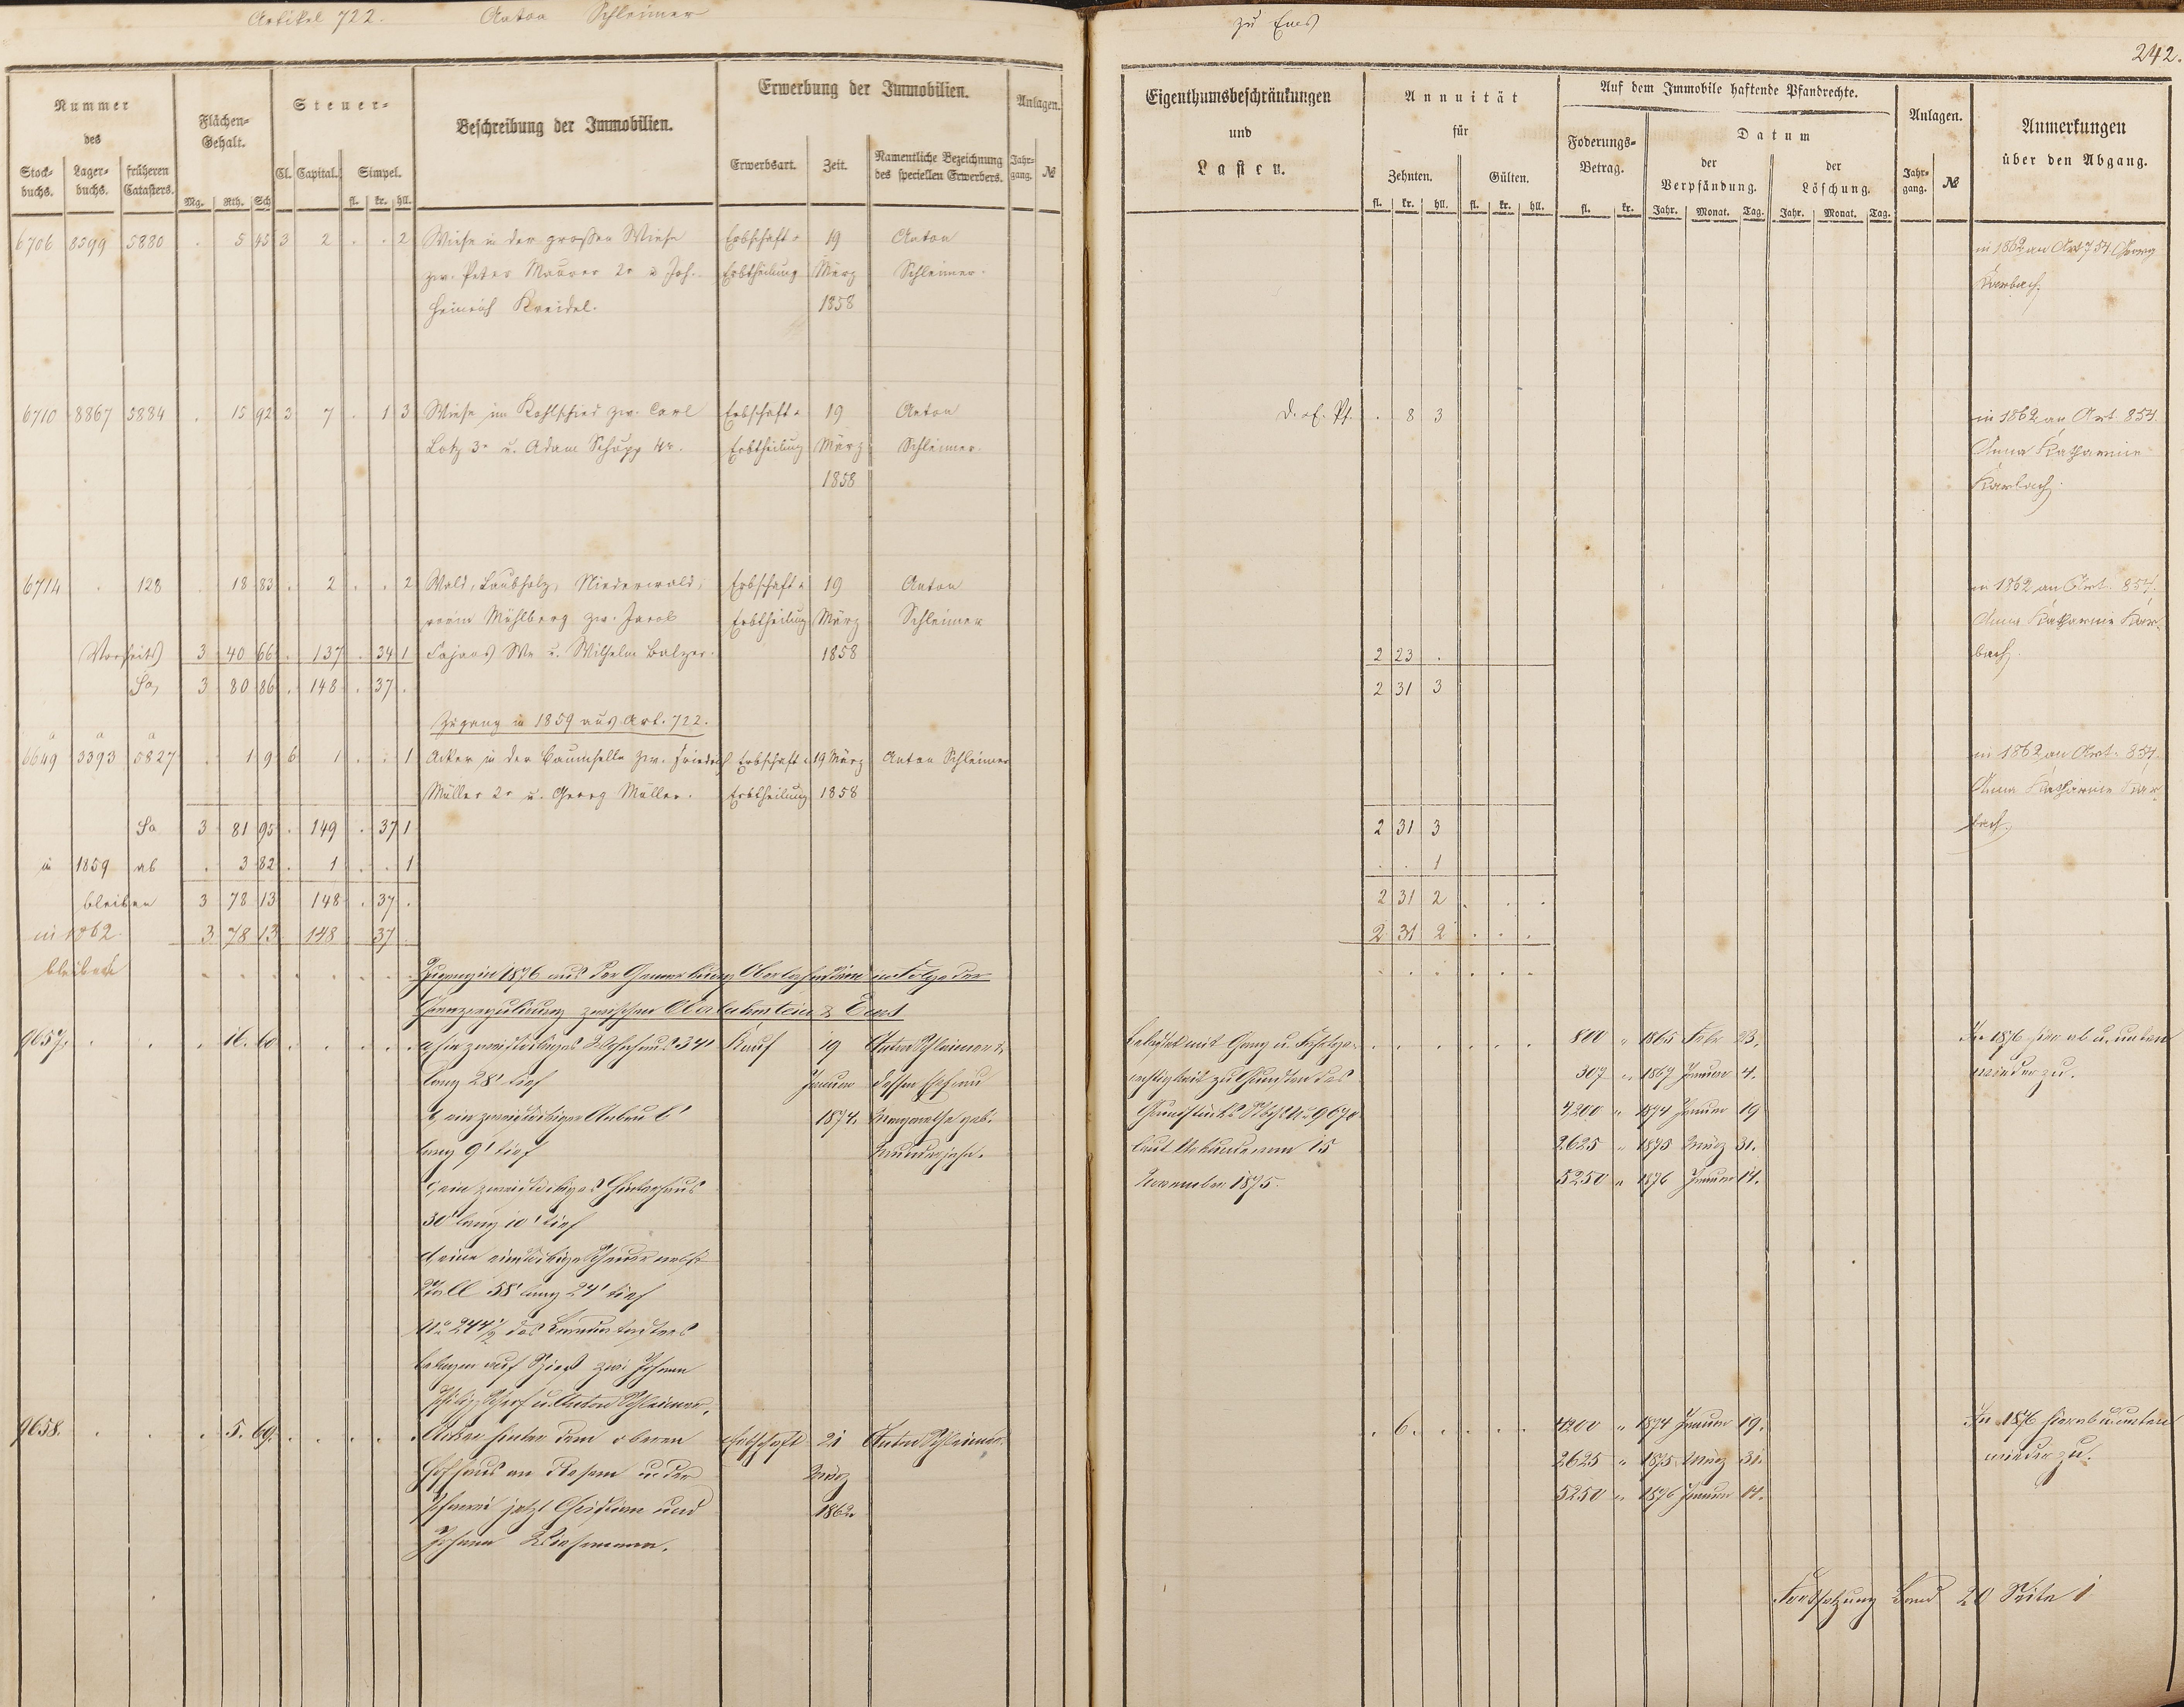 Artikel 722. Anton Schleimer zu Ems
242.
Nummer des
Stockbuchs. Lagerbuchs. früheren Catasters.
Flächen-Gehalt.
Mg. Rth. Sch
Steuer-
Cl. Capital. Simpel.
fl. kr. hll.
Beschreibung der Immobilien.
Erwerbung der Immobilien.
Erwerbsart. Zeit. Namentliche Bezeichnung des speciellen Erwerbers.
Anlagen.
Jahrgang. №
Eigenthumsbeschränkungen
und
Lasten.
Annuität
für
Zehnten. Gülten.
fl. kr. hll. fl. kr. hll.
Auf dem Immobile haftende Pfandrechte.
Foderungs-Betrag.
fl. kr.
Datum
der Verpfändung. der Löschung.
Jahr. Monat. Tag. Jahr. Monat. Tag.
Anlagen.
Jahrgang. №
Anmerkungen
über den Abgang.
6706 8599 5880 . 5 45 3 2 . . 2 Wiese in der großen Wiese Erbschaft u. 19 Anton in 1862 an Art 754 Georg
zw. Peter Maurer 2r u Joh. Erbtheilung März Schleimer. Karbach.
Heinrich Kreidel. 1858
6710 8867 5884 . 15 92 3 7 . 1 3 Wiese im Kohlschied zw. Carl Erbschaft u. 19 Anton D. . Pf. . 8 3 in 1862 an Art. 854.
Lotz 3r u. Adam Schupp 4r. Erbtheilung März Schleimer. Anna Katharina
1858 Karbach.
6714 . 128 . 18 83 . 2 . . 2 Wald, Laubholz, Niederwald, Erbschaft u. 19 Anton in 1862 an Art. 854.
Mühlberg zw. Jacob Erbtheilung März Schleimer Anna Katharina Kar-
3 40 66 . 137 . 34 1 We u. Wilhelm Balzer. 1858 2 23 . bach.
Sa, 3 80 86 . 148 . 37 . 2 31 3
Zugang in 1859 aus Art. 722.
6649 a 3393 a 5827 a . 1 9 6 1 . . 1 Acker in der zw. Friedrich Erbschaft u. 19 März Anton Schleimer in 1862 an Art. 854.
Müller 2r u. Georg Müller. Erbtheilung 1858 Anna Katharina Kar-
Sa 3 81 95 . 149 . 37 1 2 31 3 bach.
in 1859 ab . 3 82 . 1 . . 1 . . 1
bleiben 3 78 13 148 . 37 . 2 31 2 . . .
in 1862 3 78 13 148 37 . 2 31 2 . . .
bleibent . . . . . . . . . . . . .
Zugang in 1876 aus der Gemarkung Oberlahnstein in Folge der
Grenzregulirung zwischen Oberlahnstein & Ems
9657. . . . 16. 60 . . . . . a, ein zweistöckiges Wohnhaus 34' Kauf 19 Anton Schleimer u. belastet mit Gang u. . . . . . . 800 " 1865 Febr 23. In 1876 hier ab u. unten
lang 28' tief Januar dessen Ehefrau zu Gunsten des 307 " 1869 Januar 4. wieder zu.
b, ein zweistöckiger Anbau 6' 1874. Margarethe geb. Grundstücks 4200 " 1874 Januar 19
lang 9' tief laut Urkunde vom 15 2625 " 1875 März 31.
c, ein zweistöckiges Hinterhaus November 1875. 5250 " 1876 Januar 14.
30' lang 10' tief
d, eine einstöckige Scheuer nebst
Stall 58' lang 24' tief
№ 244½ des
belegen auf Spieß zw. Johann
Philipp u. Anton Schleimer.
9658. . . . 5. 69. . . . . . Acker hinter dem oberen Erbschaft 21 Anton Schleimer. . 6. . . . . 4200 " 1874 Januar 19. In 1876 hier ab u. unten
an u. der März 2625 " 1875 März 31. wieder zu.
jetzt Christian und 1862. 5250 " 1876 Januar 14.
Johann
Fortsetzung Band 20 Seite 1